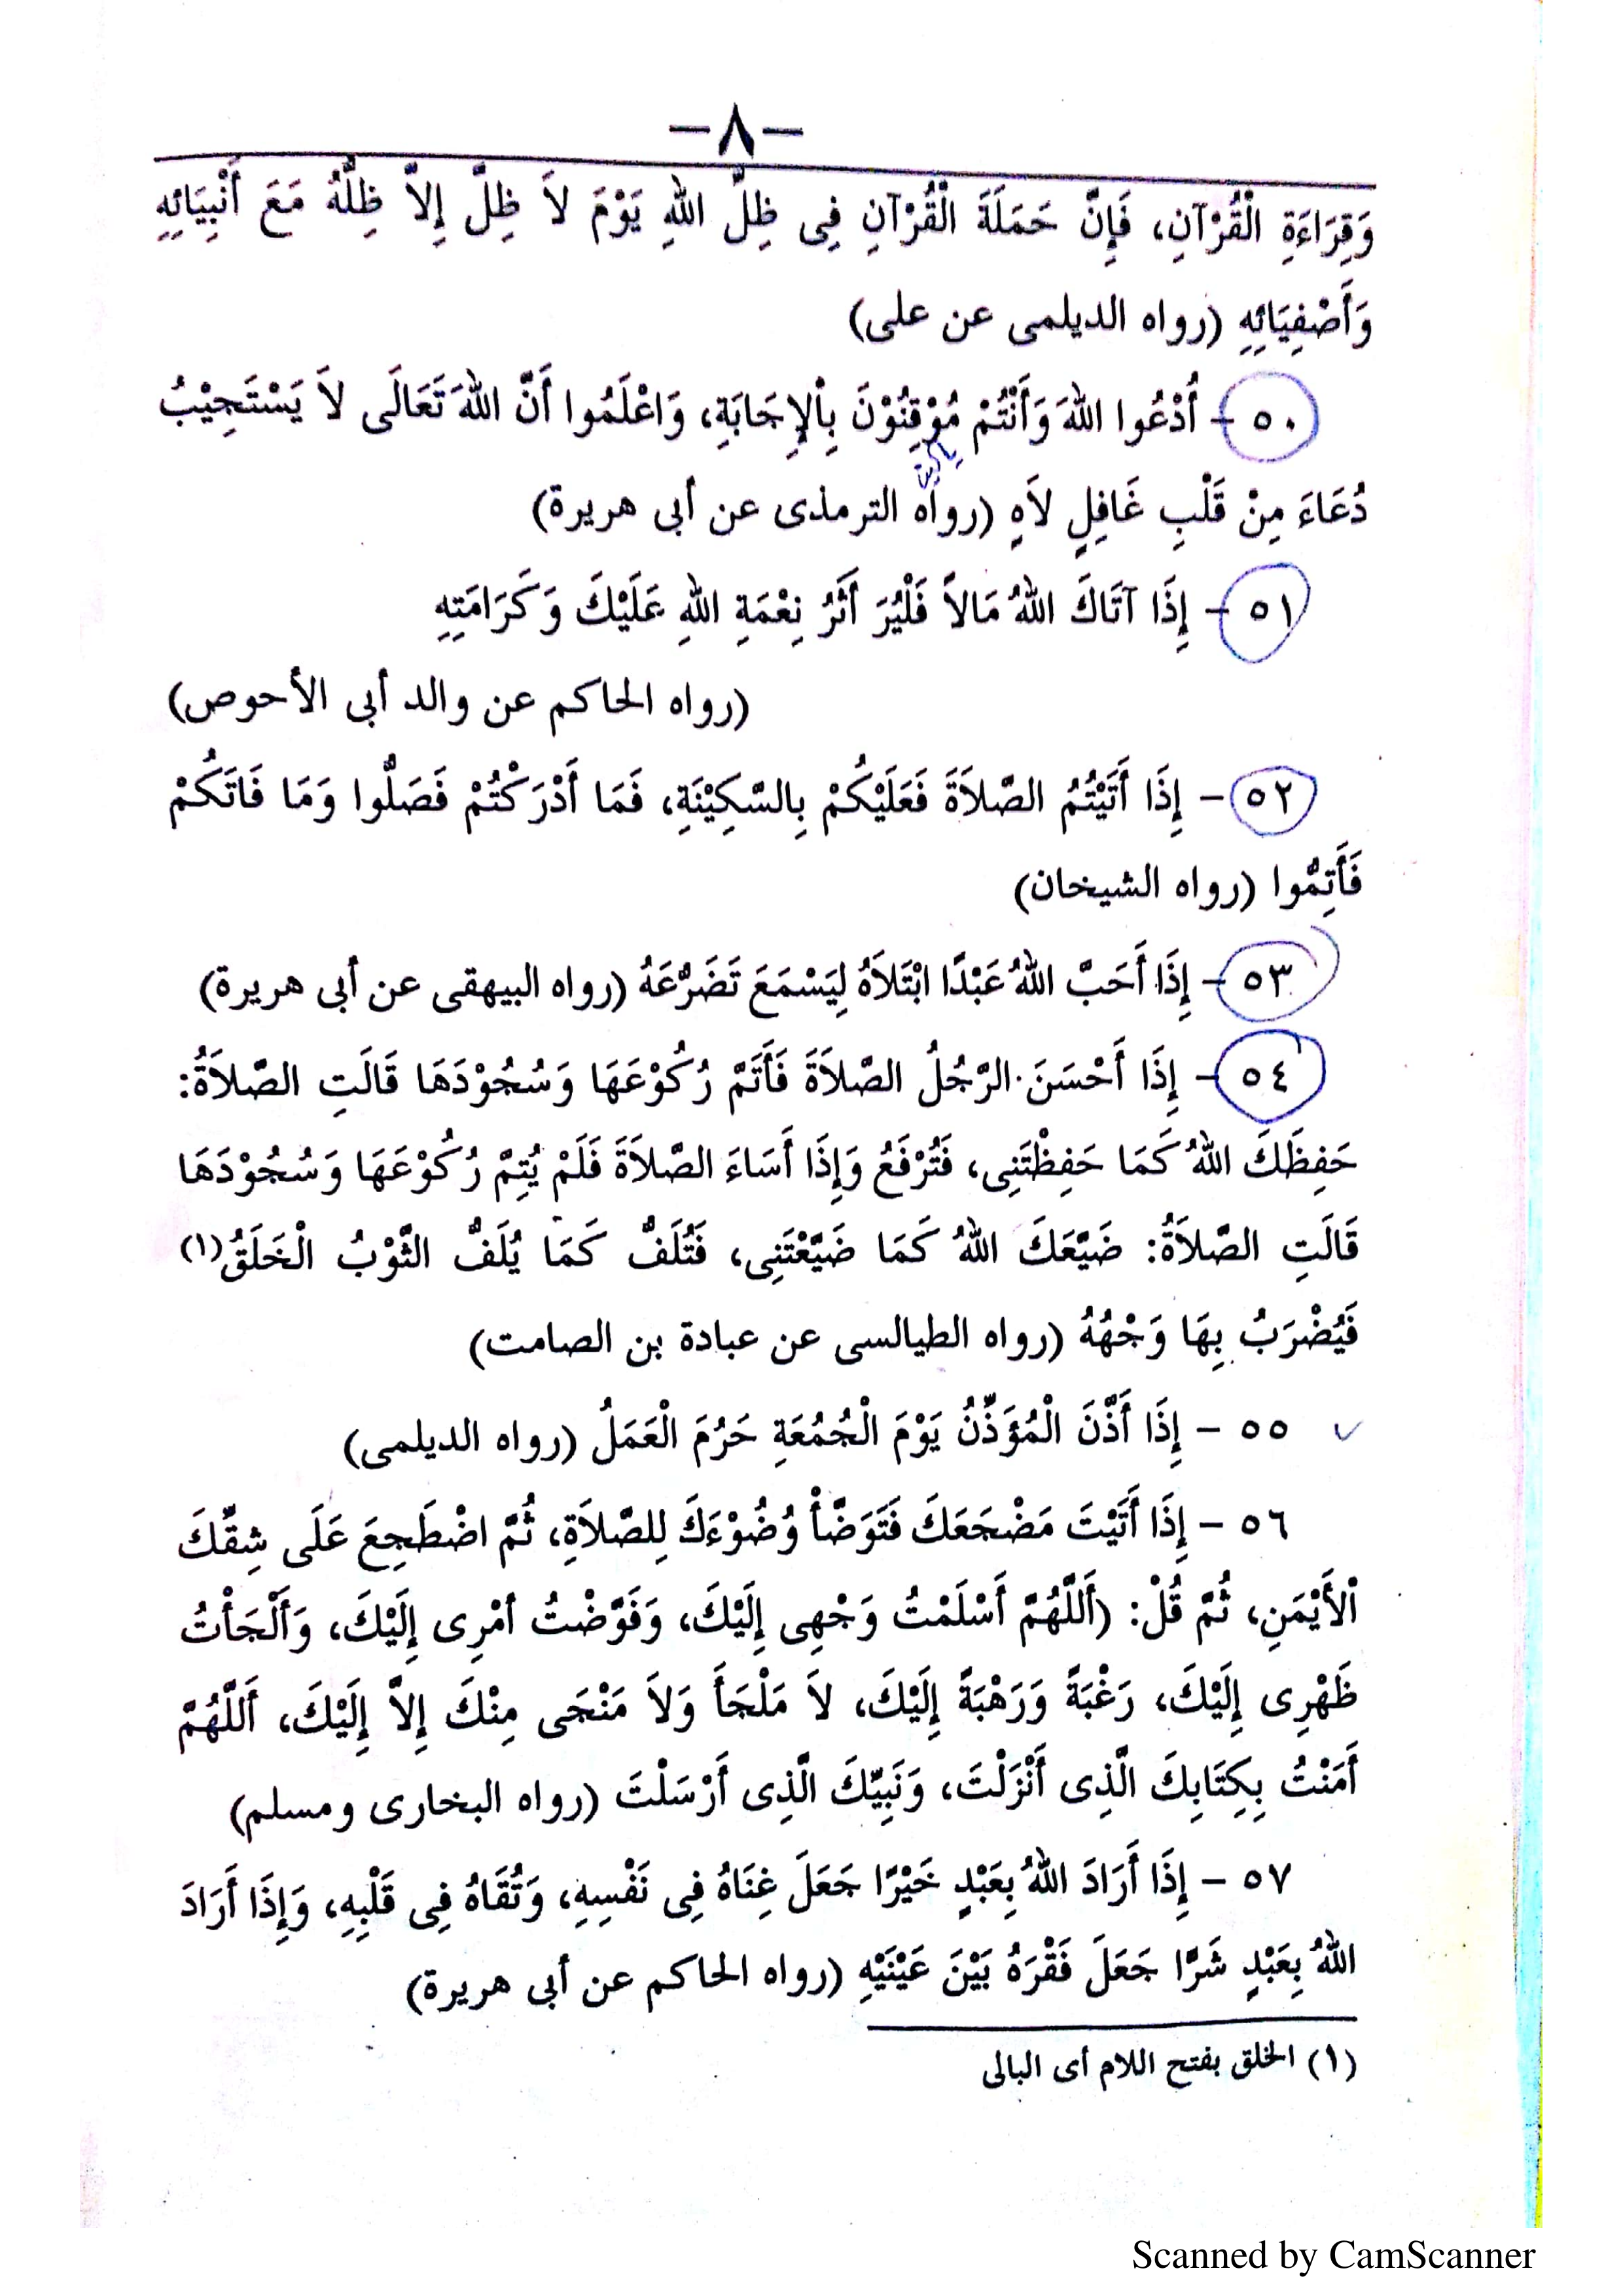 -٨-
وَقِرَاءَةِ الْقُرْآنِ، فَإِنَّ حَمَلَةَ الْقُرْآنِ فِى ظِلِّ اللهِ يَوْمَ لاَ ظِلَّ إِلاَّ ظِلُّهُ مَعَ أَنْبِيَائِهِ
وَأَصْفِيَائِهِ (رواه الديلمى عن على)
٥٠ - أُدْعُوا اللهَ وَأَنْتُمْ مُوْقِنُوْنَ بِاْلإِجَابَةِ، وَاعْلَمُوا أَنَّ اللهَ تَعَالَى لاَ يَسْتَجِيْبُ
دُعَاءَ مِنْ قَلْبِ غَافِلٍ لاَهٍ (رواه الترمذى عن أبى هريرة)
٥١ - إِذَا آتَاكَ اللهُ مَالاً فَلْيُرَ أَثَرُ نِعْمَةِ اللهِ عَلَيْكَ وَكَرَامَتِهِ
(رواه الحاكم عن والد أبى الأحوص)
٥٢ - إِذَا أَتَيْتُمُ الصَّلاَةَ فَعَلَيْكُمْ بِالسَّكِيْنَةِ، فَمَا أَدْرَكْتُمْ فَصَلُّوا وَمَا فَاتَكُمْ
فَأَتِمُّوا (رواه الشيخان)
٥٣ - إِذَا أَحَبَّ اللهُ عَبْدًا ابْتَلاَهُ لِيَسْمَعَ تَضَرُّعَهُ (رواه البيهقى عن أبى هريرة)
٥٤ - إِذَا أَحْسَنَ الرَّجُلُ الصَّلاَةَ فَأَتَمَّ رُكُوْعَهَا وَسُجُوْدَهَا قَالَتِ الصَّلاَةُ:
حَفِظَكَ اللهُ كَمَا حَفِظْتَنِى، فَتُرْفَعُ وَإِذَا أَسَاءَ الصَّلاَةَ فَلَمْ يُتِمَّ رُكُوْعَهَا وَسُجُوْدَهَا
قَالَتِ الصَّلاَةُ: ضَيَّعَكَ اللهُ كَمَا ضَيَّعْتَنِى، فَتُلَفُّ كَمَا يُلَفُّ الثَّوْبُ الْخَلَقُ(١)
فَيُضْرَبُ بِهَا وَجْهُهُ (رواه الطيالسى عن عبادة بن الصامت)
٥٥ - إِذَا أَذَّنَ الْمُؤَذِّنُ يَوْمَ الْجُمُعَةِ حَرُمَ الْعَمَلُ (رواه الديلمى)
٥٦ - إِذَا أَتَيْتَ مَضْجَعَكَ فَتَوَضَّأْ وُضُوْءَكَ لِلصَّلاَةِ، ثُمَّ اضْطَجِعَ عَلَى شِقِّكَ
اْلأَيْمَنِ، ثُمَّ قُلْ: (أَللَّهُمَّ أَسْلَمْتُ وَجْهِى إِلَيْكَ، وَفَوَّضْتُ أمْرِى إِلَيْكَ، وَأَلْجَأْتُ
ظَهْرِى إِلَيْكَ، رَغْبَةً وَرَهْبَةً إِلَيْكَ، لاَ مَلْجَأَ وَلاَ مَنْجَى مِنْكَ إِلاَّ إِلَيْكَ، أَللَّهُمَّ
أَمَنْتُ بِكِتَابِكَ الَّذِى أَنْزَلْتَ، وَنَبِيِّكَ الَّذِى أَرْسَلْتَ (رواه البخارى ومسلم)
٥٧ - إِذَا أَرَادَ اللهُ بِعَبْدٍ خَيْرًا جَعَلَ غِنَاهُ فِى نَفْسِهِ، وَتُقَاهُ فِى قَلْبِهِ، وَإِذَا أَرَادَ
اللهُ بِعَبْدٍ شَرًّا جَعَلَ فَقْرَهُ بَيْنَ عَيْنَيْهِ (رواه الحاكم عن أبى هريرة)
(١) الخلق بفتح اللام أى البالى
Scanned by CamScanner